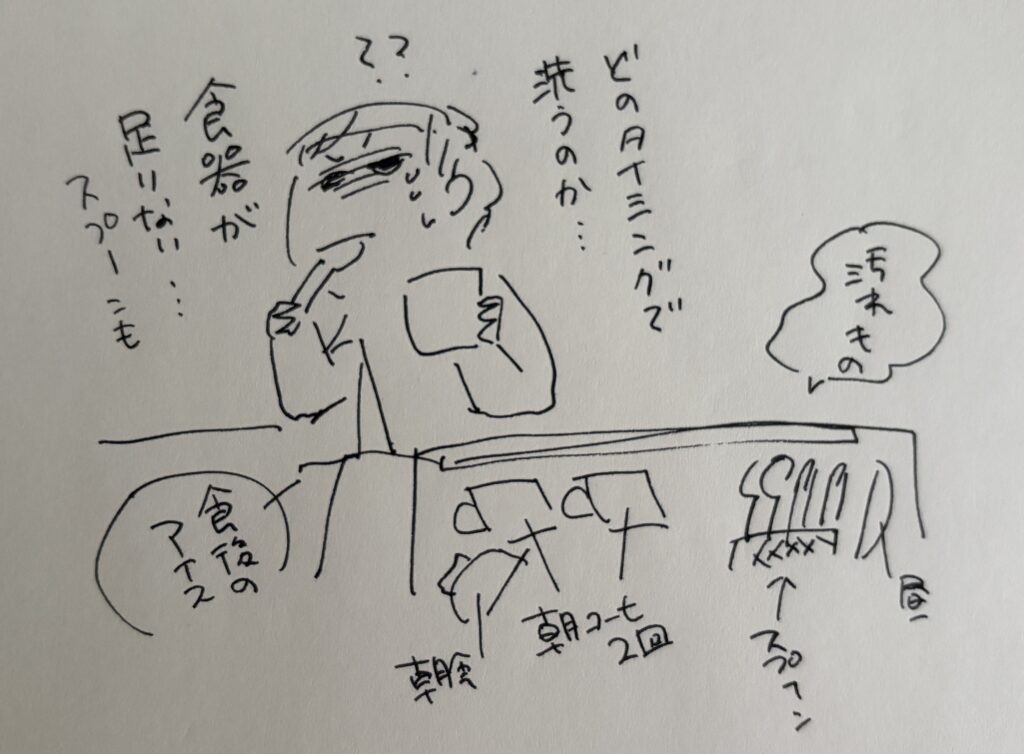 ??
どのタイミングで
洗うのか…
食器が
足りない…
スプーンも
汚れもの
食後の
アイス
朝食
朝コーヒ
2回
スプーン
昼